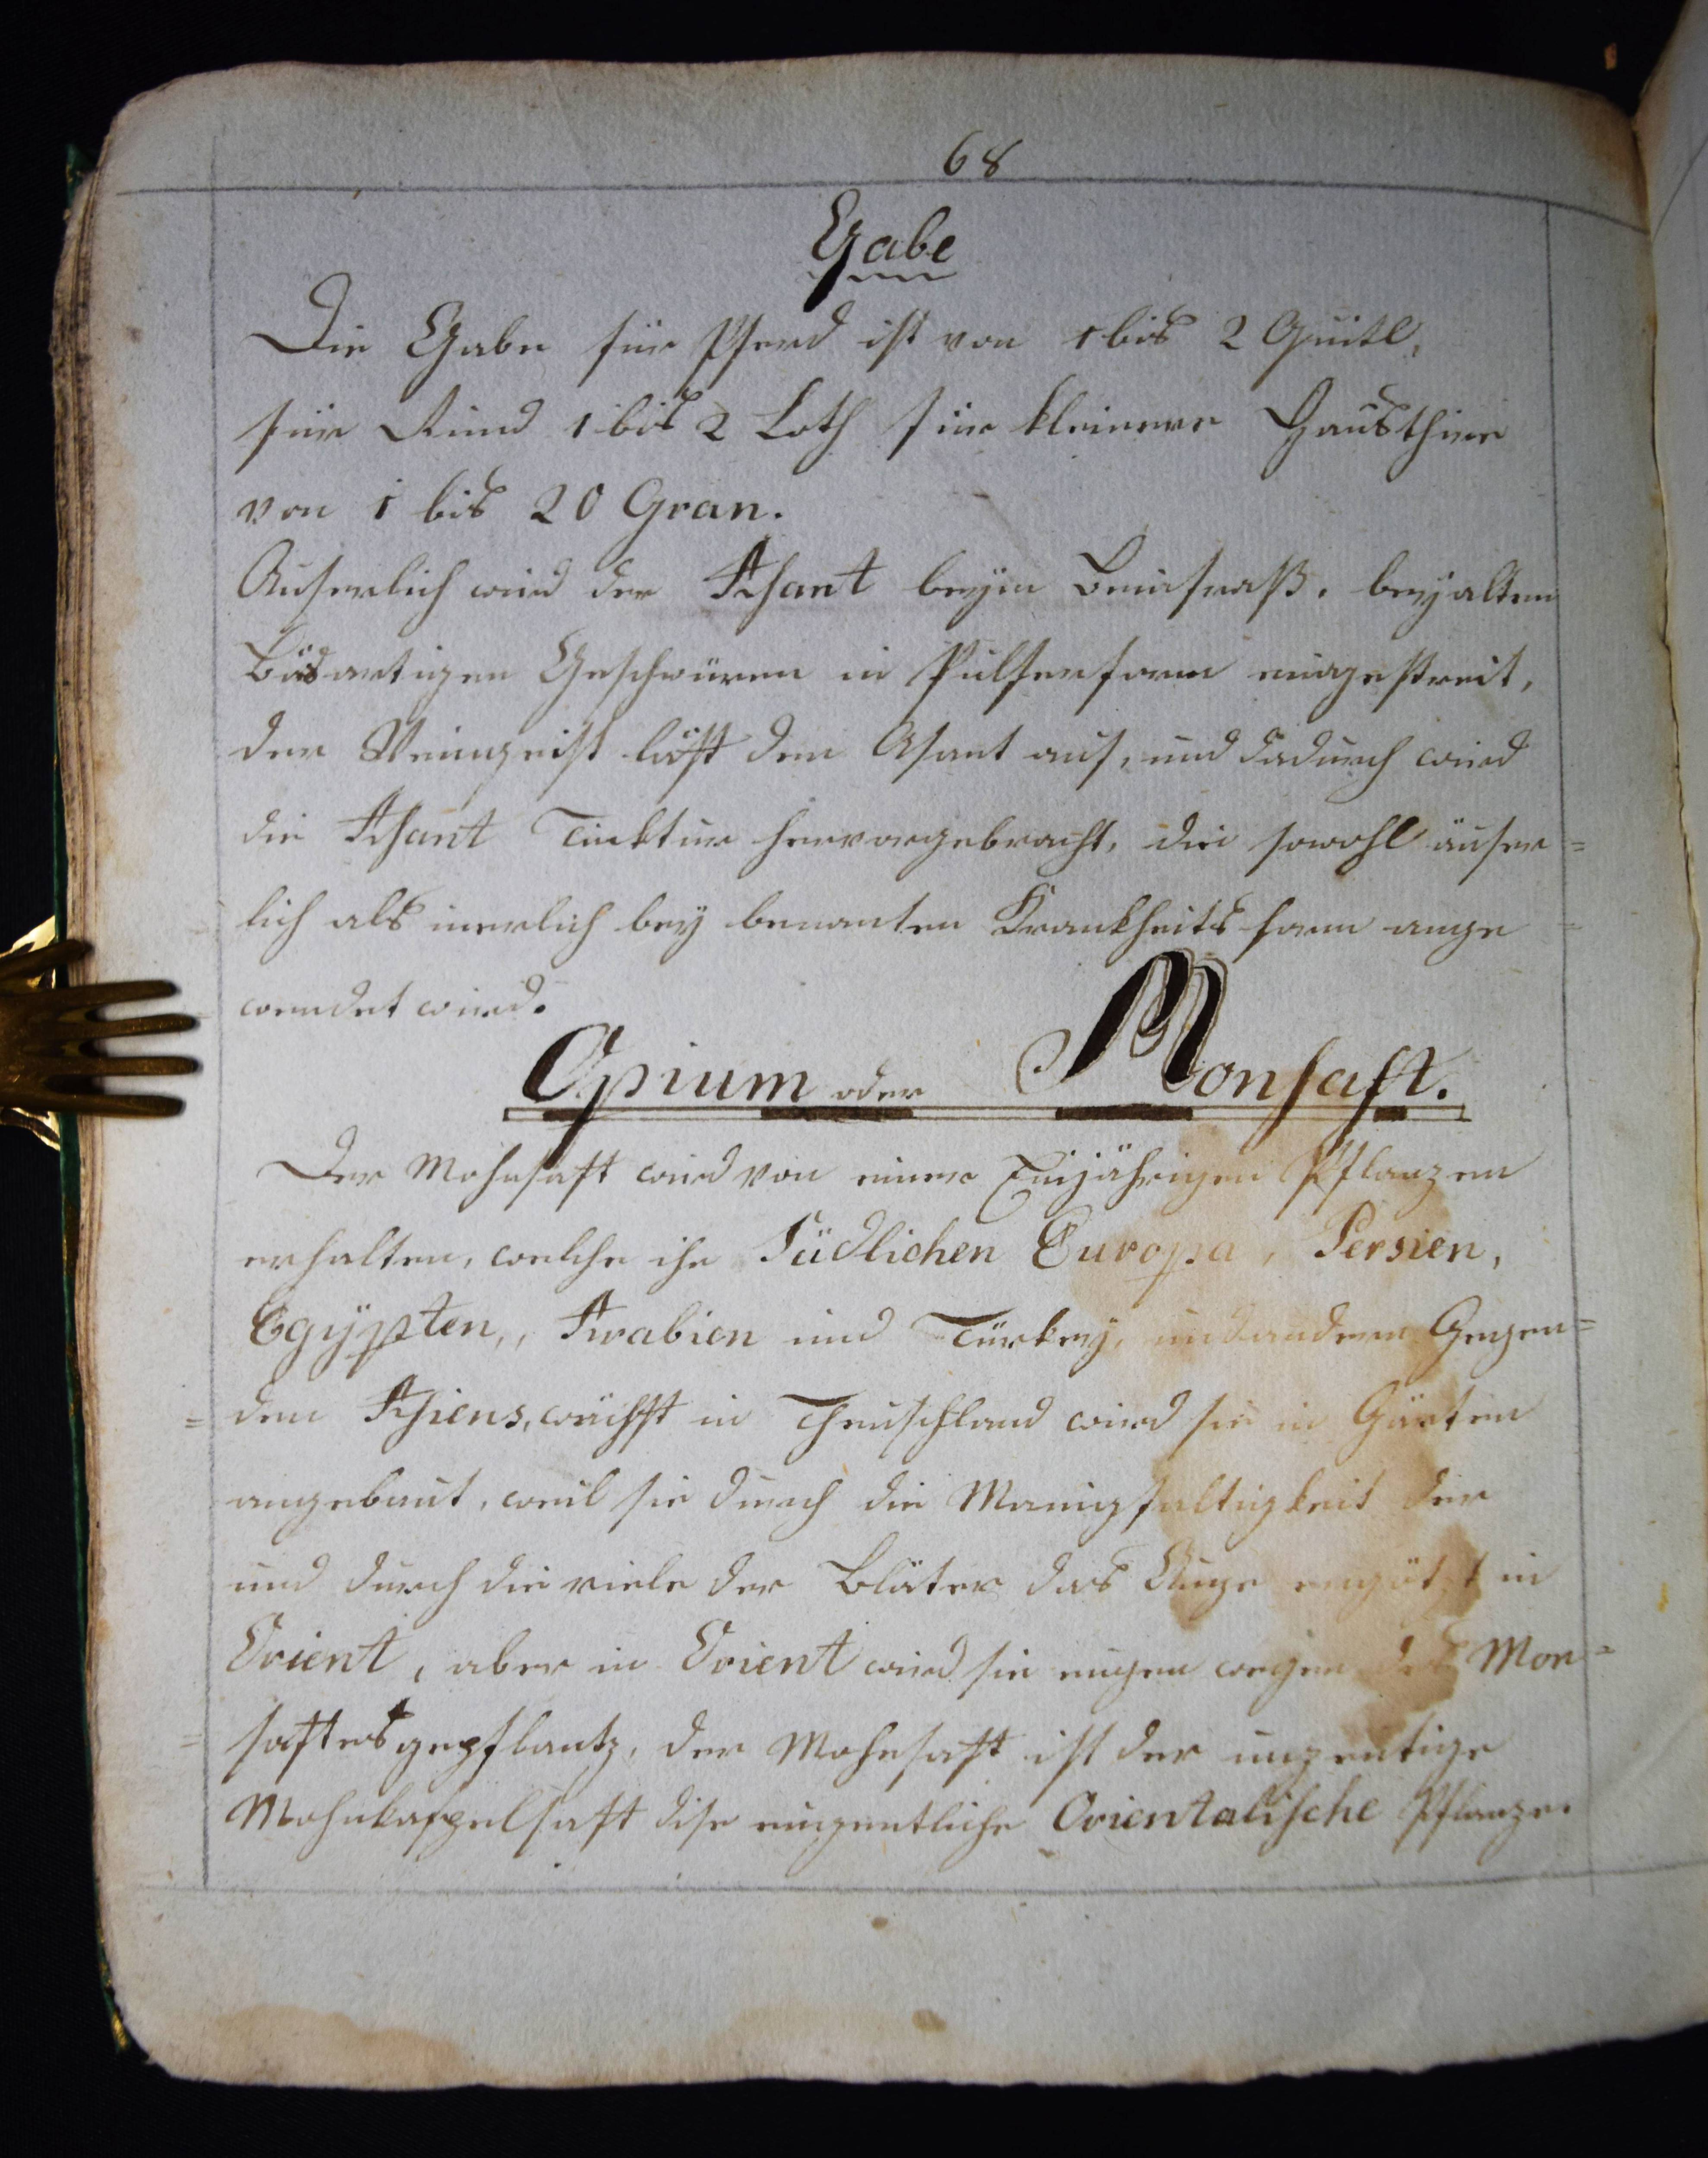 68
Gabe
Die Gabe für Pferd ist von 1 bis 2 Quitl,
für Rind 1 bis 2 Loth für kleinere Hausthire
von 1 bis 20 Gran.
Auserlich wird der Asant beym Beinfraß, bey alten
Bösartigen Geschwüren in Pulferform eingestreit,
der Weingeist löst den Asant auf, und dadurch wird
die Asant Tinktur hervorgebracht, die sowohl äuser=
lich als inerlich bey benanten Krankheits form ange=
wendet wird.
Opium oder Monsaft.
Der Mohnsaft wird von einer Einjährigen Pflanzen
erhalten, welche ihr Südlichen Europa, Persien,
Egÿpten,, Arabien und Türkey, und andern Gegen=
=den Asiens, wächst in Theuschland wird sie in Gärten
angebaut, weil sie durch die Manigfaltigkeit der
und durch die viele der Bläter das Auge ergötzt in
Orient, aber in Orient wird sie eigen wegen des Mon=
=saftes gepflantz, der Mohnsaft ist der
Mohnkapselsaft dise eigentliche Orientalische Pflanze.